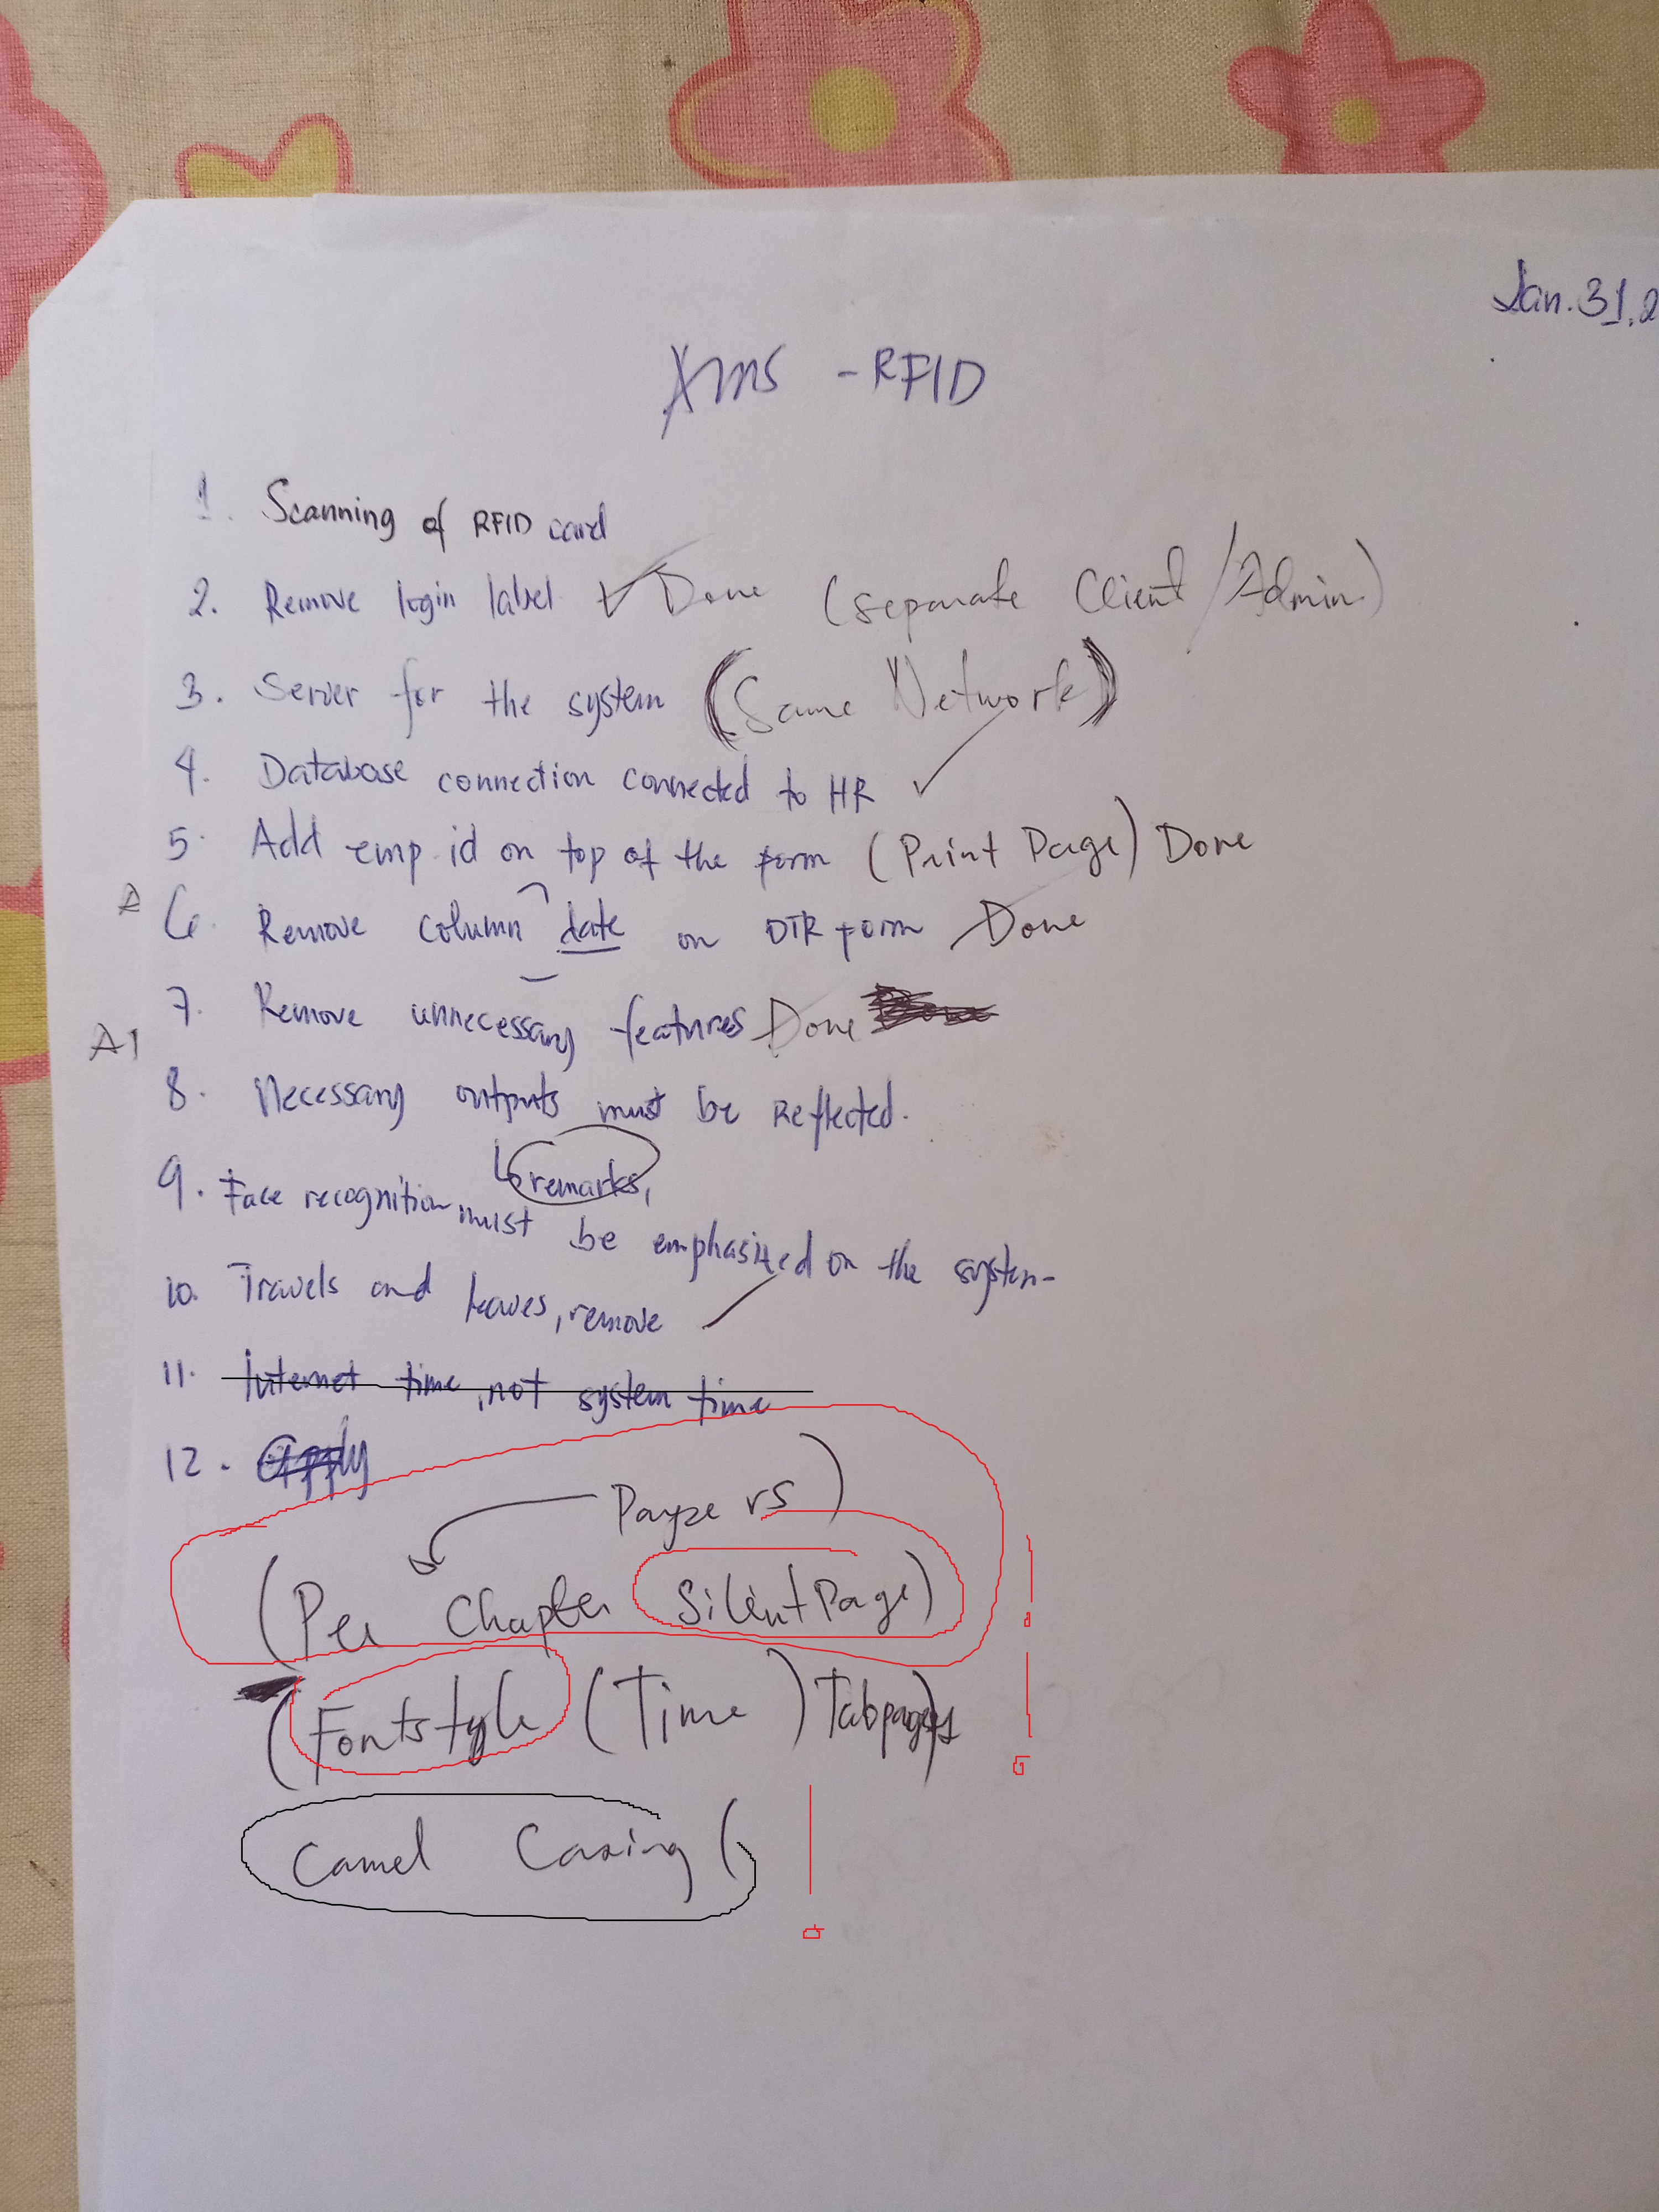 Jan. 31, 2
XMS - RFID
1. Scanning of RFID card
2. Remove login label Done (separate Client/Admin)
3. Server for the system (Same Network)
4. Database connection connected to HR
5. Add emp id on top of the form (Print Page) Done
A 6. Remove column date on DTR form Done
7. Remove unnecessary features Done
A1
8. Necessary outputs must be reflected.
remarks,
9. Face recognition, must be emphasized on the system
10. Travels and leaves, remove
11. Internet time, not system time
12.
rs)
(Per Chapter Silent Page)
(Fontstyle (Time) Tabpages)
Camel Casing (